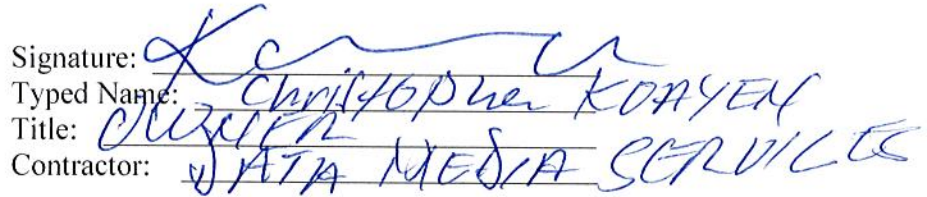 Signature:
Typed Name: Christopher KOAYEN
Title: OWNER
Contractor: DATA MEDIA SERVICES